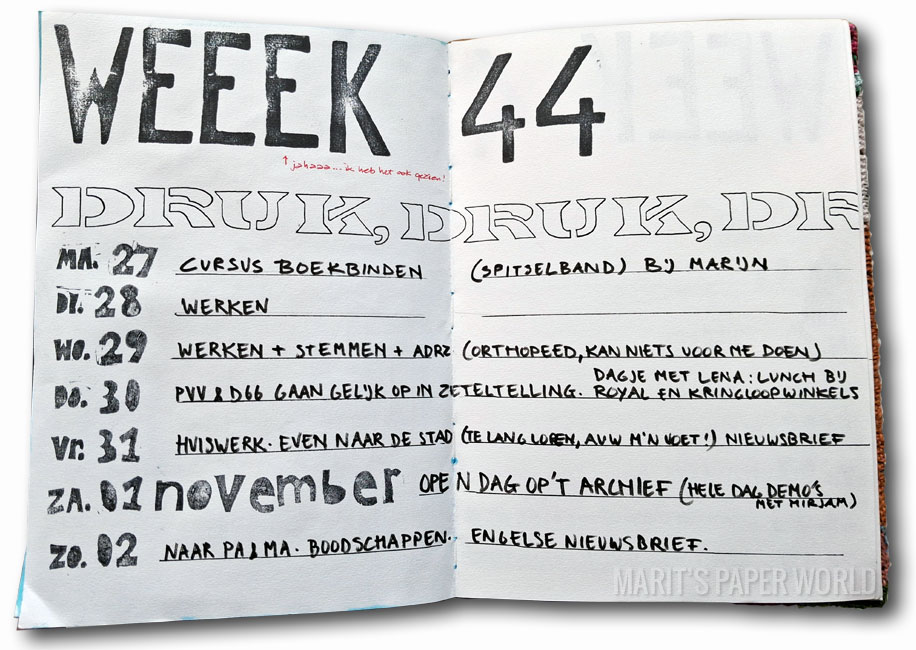 WEEEK 44
↑ jahaaa... ik heb het ook gezien!
DRUK, DRUK, DR
MA. 27 CURSUS BOEKBINDEN (SPITSELBAND) BIJ MARIJN
DI. 28 WERKEN
WO. 29 WERKEN + STEMMEN + ADRZ (ORTHOPEED, KAN NIETS VOOR ME DOEN)
DO. 30 PVV & D66 GAAN GELIJK OP IN ZETELTELLING. DAGJE MET LENA: LUNCH BIJ
ROYAL EN KRINGLOOPWINKELS
VR. 31 HUISWERK. EVEN NAAR DE STAD (TE LANG LOPEN, AUW M'N VOET!) NIEUWSBRIEF
ZA. 01 november OPEN DAG OP'T ARCHIEF (HELE DAG DEMO'S
MET MIRJAM)
ZO. 02 NAAR PALMA. BOODSCHAPPEN. ENGELSE NIEUWSBRIEF.
MARIT'S PAPER WORLD